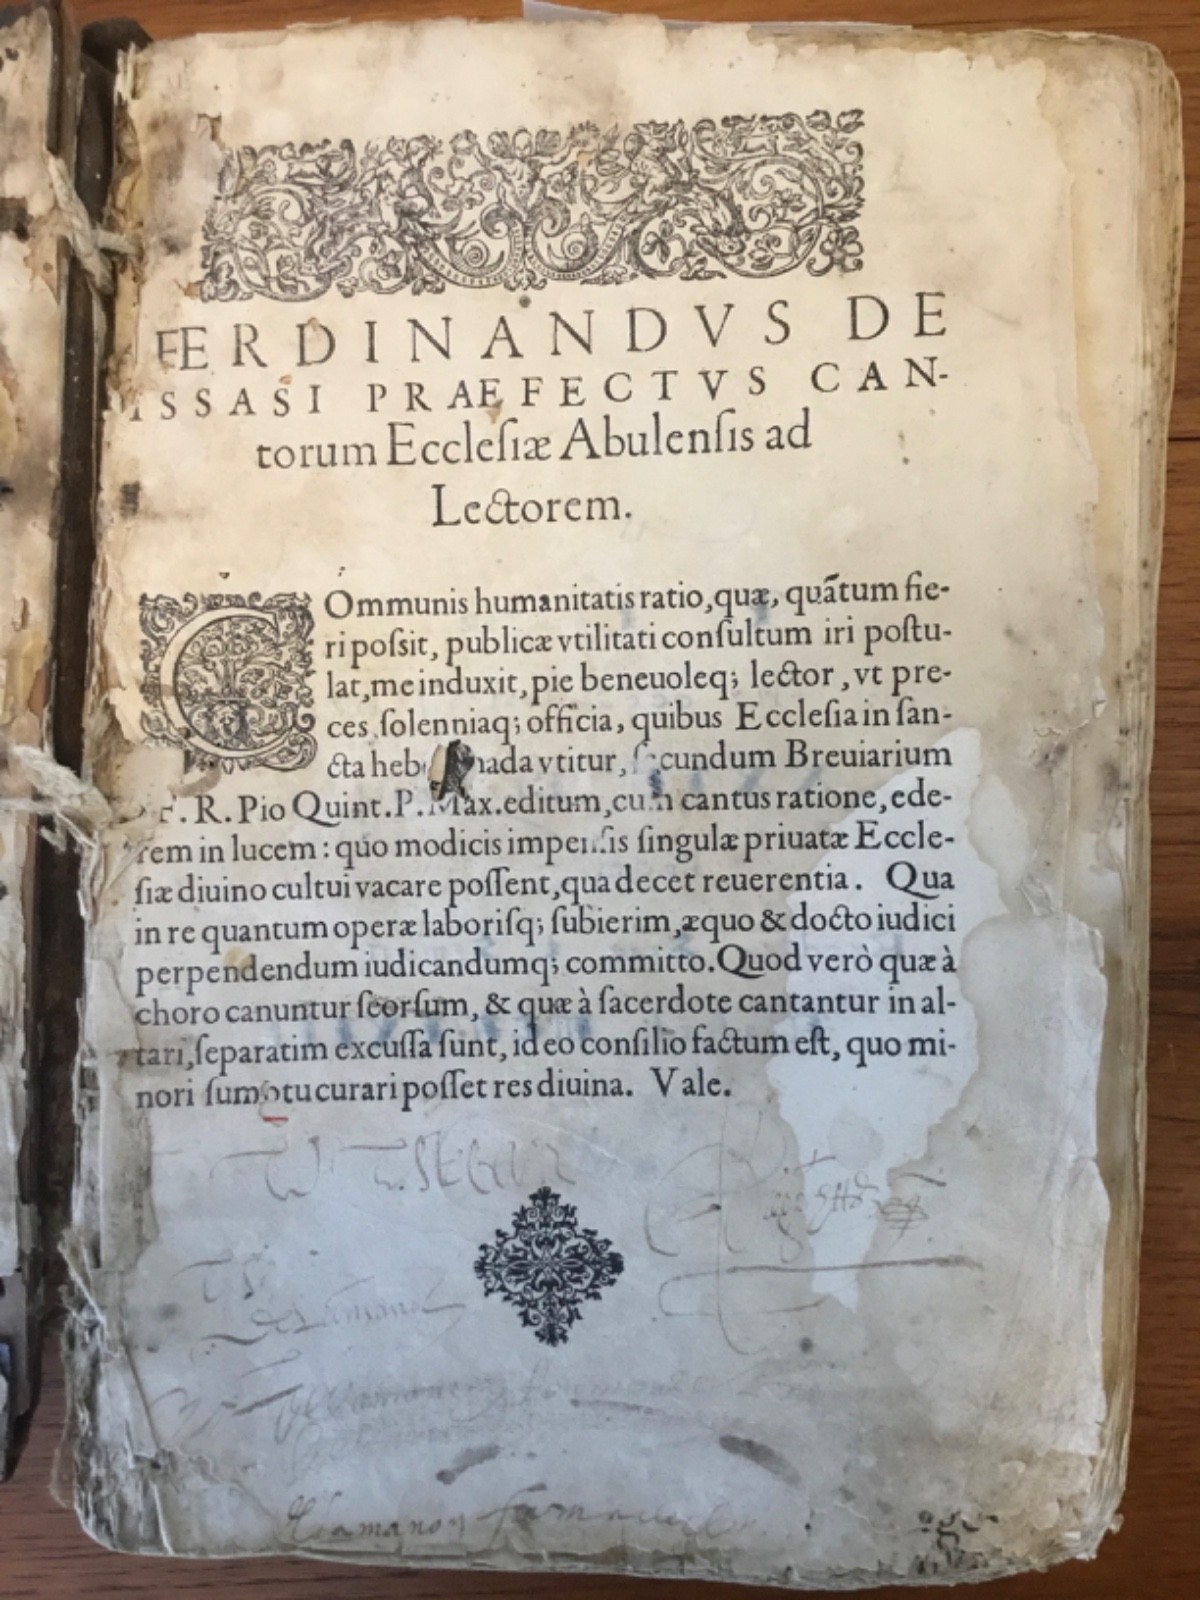 FERDINANDVS DE
YSSASI PRAEFECTVS CAN-
torum Ecclesiæ Abulensis ad
Lectorem.
COmmunis humanitatis ratio, quæ, quãtum fie-
ri poſsit, publicæ vtilitati conſultum iri poſtu-
lat, me induxit, pie beneuoleq; lector, vt pre-
ces ſolenniaq; officia, quibus Eccleſia in ſan-
cta vtitur, ſecundum Breuiarium
F. R. Pio Quint. P. Max. editum, cum cantus ratione, ede-
rem in lucem: quo modicis impenſis ſingulæ priuatæ Eccle-
ſiæ diuino cultui vacare poſſent, qua decet reuerentia. Qua
in re quantum operæ laborisq; ſubierim, æquo & docto iudici
perpendendum iudicandumq; committo. Quod verò quæ à
choro canuntur ſeorſum, & quæ à ſacerdote cantantur in al-
tari, ſeparatim excuſſa ſunt, id eo conſilio factum eſt, quo mi-
nori ſumptu curari poſſet res diuina. Vale.